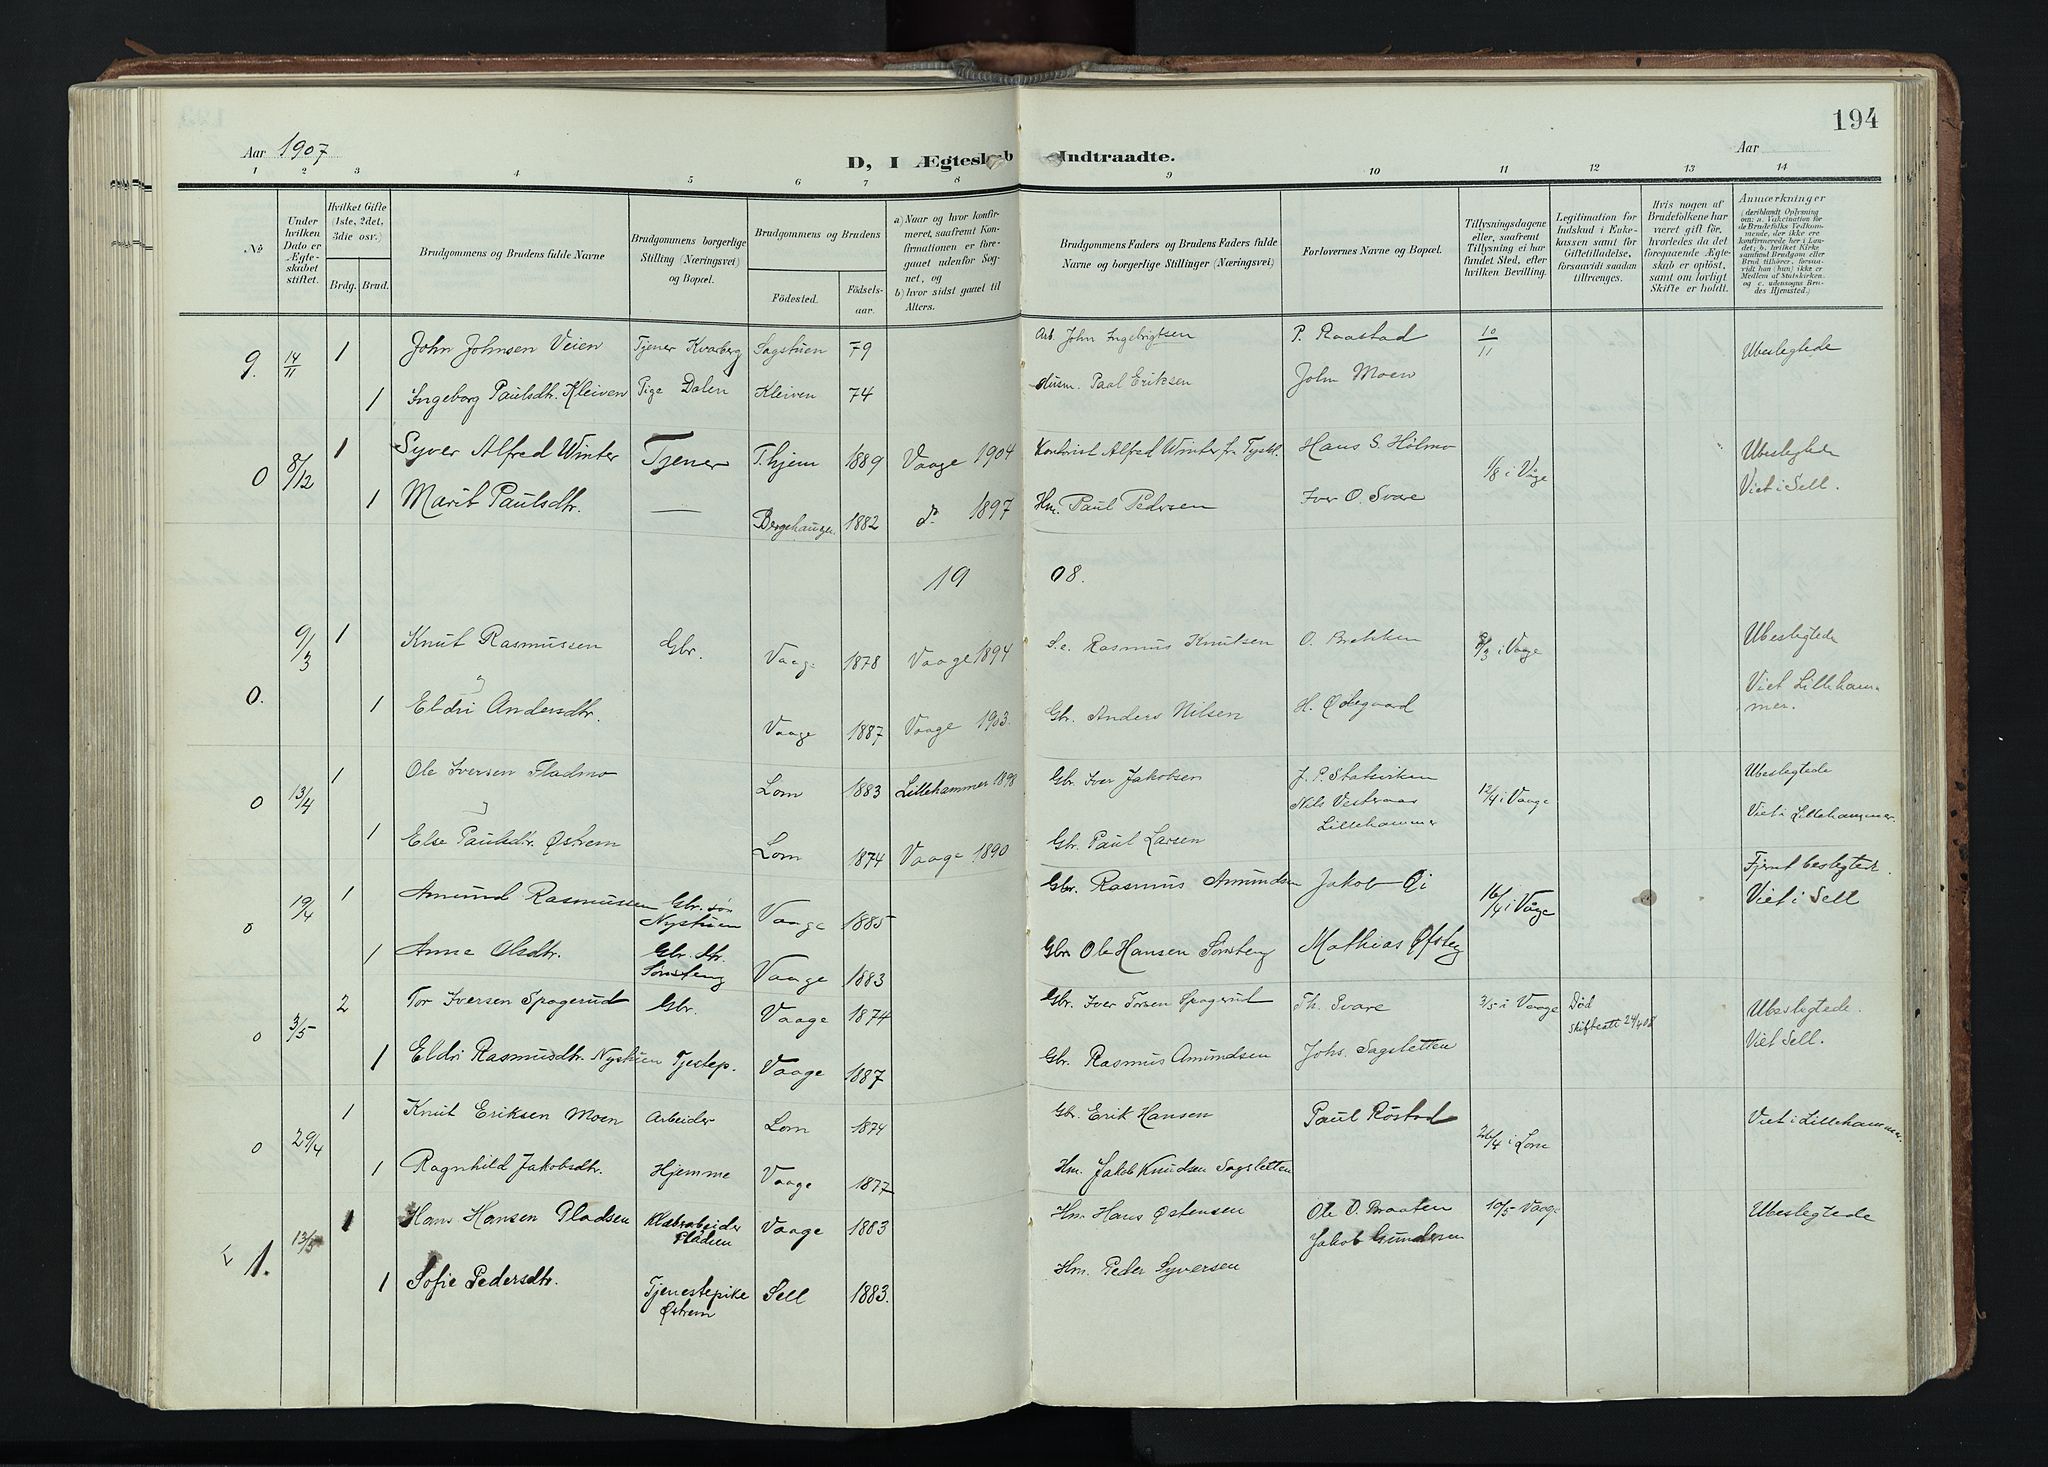 194
Aar 1907
D, I Ægteskab Indtraadte.
Aar
1 2 3 4 5 6 7 8 9 10 11 12 13 14
No
Under hvilken Dato er Ægteskabet stiftet.
Hvilket Gifte (1ste, 2det, 3die osv.)
Brdg. Brud.
Brudgommens og Brudens fulde Navne
Brudgommens borgerlige Stilling (Næringsvei) og Bopæl.
Brudgommens og Brudens
Födested.
Födsels-aar.
a) Naar og hvor konfirmeret, saafremt Konfirmationen er foregaaet udenfor Sognet, og
b) hvor sidst gaaet til Alters.
Brudgommens Faders og Brudens Faders fulde Navne og borgerlige Stillinger (Næringsvei)
Forlovernes Navne og Bopæl.
Tillysningsdagene eller, saafremt Tillysning ei har fundet Sted, efter hvilken Bevilling.
Legitimation for Indskud i Enkekassen samt for Giftetilladelse, forsaavidt saadan tiltrænges.
Hvis nogen af Brudefolkene har været gift för, hvorledes da det foregaaende Ægteskab er oplöst, samt om lovligt Skifte er holdt.
Anmærkninger
(deriblandt Oplysning om: a. Vakcination for de Brudefolks Vedkommende, der ikke ere konfirmerede her i Landet; b. hvilket Kirkesamfund Brudgom eller Brud tilhører, forsaavidt han (hun) ikke er Medlem af Statskirken, og c. udensogns Brudes Hjemsted.)
9. 14/11 1 John Johnsen Veien Tjener Kvarberg Sagstuen 79 Arb. John Ingebrigtsen P. Raastad 10/11 Ubeslegtede
1 Ingeborg Paulsdtr. Kleiven Pige Dalen Kleiven 74 Husm. Paal Eriksen John Moen
0 8/12 1 Syver Alfred Winter Tjener T.hjem 1889 Vaage 1904 Alfred Winter fra Tyskl. Hans S. Holmo 1/8 i Våge Ubeslegtede
1 Marit Paulsdtr. — 1882 d. 1897 Hm. Paul Pedersen Iver O. Svare Viet i Sell.
19 08.
9/3 1 Knut Rasmussen Gbr. Vaage 1878 Vaage 1894 S.e. Rasmus Knutsen O. Brekken 8/3 i Vaage Ubeslegtede
0. 1 Eldri Andersdtr. Vaage 1887 Vaage 1903. Gbr. Anders Nilsen H. Ødegaard Viet Lillehammer.
0 13/4 1 Ole Iversen Fladmo Lom 1883 Lillehammer 1898 Gbr. Iver Jakobsen J. P. Statsviken 12/4 i Vaage Ubeslegtede
Nils Vestraas Lillehammer Viet i Lillehammer.
1 Else Paulsdtr. Østrem Lom 1874 Vaage 1890 Gbr. Paul Larsen
0 19/4 1 Amund Rasmussen Gbr. søn Nystuen Vaage 1885 Gbr. Rasmus Amundsen Jakob Øi 16/4 i Våge Fjernt beslegtede. Viet i Sell
1 Anne Olsdtr. Gbr. dtr. Sønsteng Vaage 1883 Gbr. Ole Hansen Sønsteng Mathias Øfsteng
0 3/5 2 Tor Iversen Spagerud Gbr. Vaage 1874 Gbr. Iver Torsen Spagerud Th. Svare 3/5 i Vaage Død skifteatt 24/4 08 Ubeslegtede.
1 Eldri Rasmusdtr. Nystuen Tjestep. Vaage 1887 Gbr. Rasmus Amundsen Johs. Sagsletten Viet Sell.
0 29/4 1 Knut Eriksen Moen Arbeider Lom 1874 Gbr. Erik Hansen Paul Røstad 26/4 i Lom Viet i Lillehammer.
1 Ragnhild Jakobsdtr. Hjemme Vaage 1877 Hm. Jakob Knudsen Sagsletten
1. 13/5 1 Hans Hansen Pladsen Klæbrabeider Pladsen Vaage 1883 Hm Hans Østensen Ole O. Braaten 10/5 Vaage Ubeslegtede
Jakob Gundersen
1 Sofie Pedersdtr. Tjenestepike Østrem Sell 1883. Hm. Peder Syversen